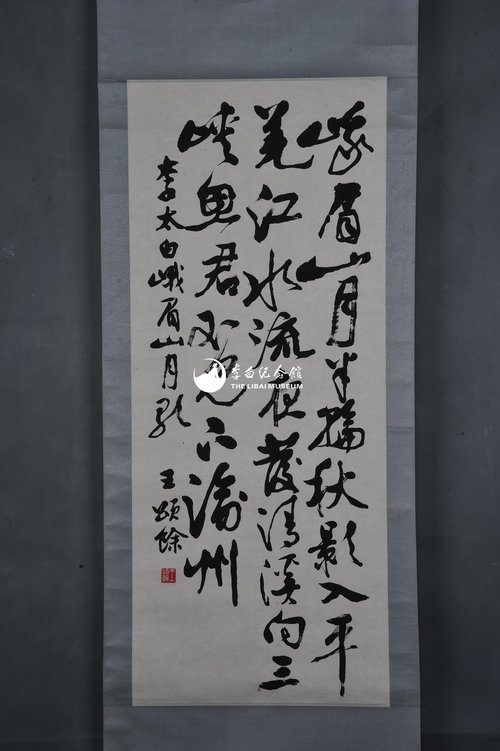 峨眉山月半輪秋影入平
羌江水流夜發清溪向三
峽思君不見下渝州
李太白峨眉山月歌
王頌餘
李白纪念館
THE LIBAI MUSEUM